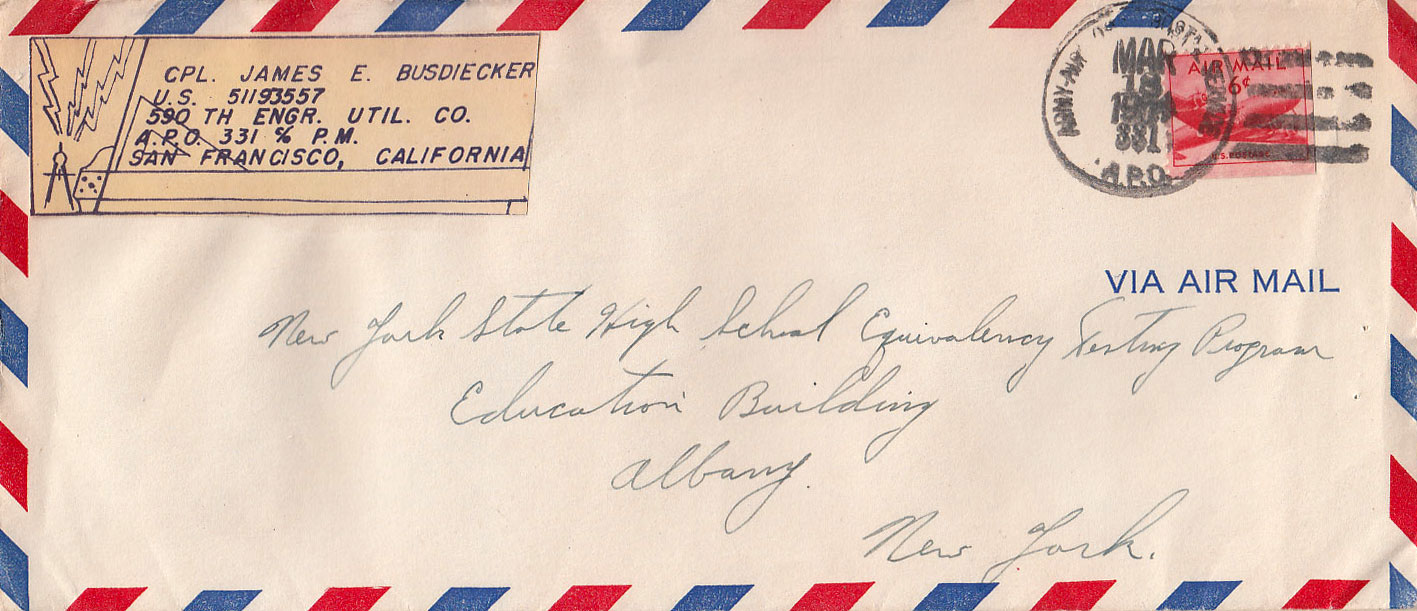 CPL. JAMES E. BUSDIECKER
U.S. 51193557
590 TH ENGR. UTIL. CO.
A.P.O. 331 % P.M.
SAN FRANCISCO, CALIFORNIA
ARMY-AIR POSTAL SERVICE
MAR
18
331
A.P.O.
AIR MAIL
6¢
U.S. POSTAGE
VIA AIR MAIL
New York State High School Equivalency Testing Program
Education Building
Albany.
New York.